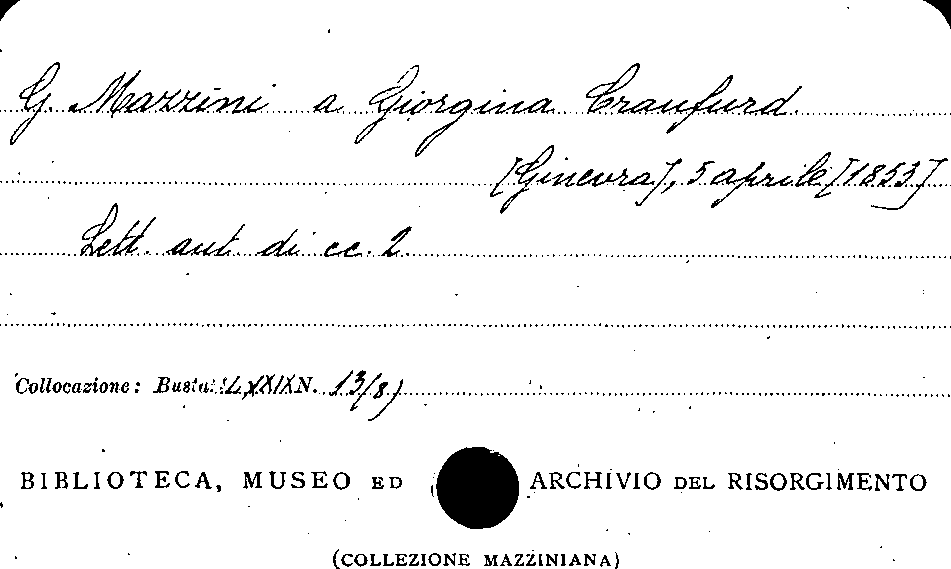 G. Mazzini a Giorgina Craufurd.
[Ginevra], 5 aprile [1853]
Lett. aut. di cc. 2.
Collocazione: Busta: LXXIX N. 13(8)
BIBLIOTECA, MUSEO ED ARCHIVIO DEL RISORGIMENTO
(COLLEZIONE MAZZINIANA)